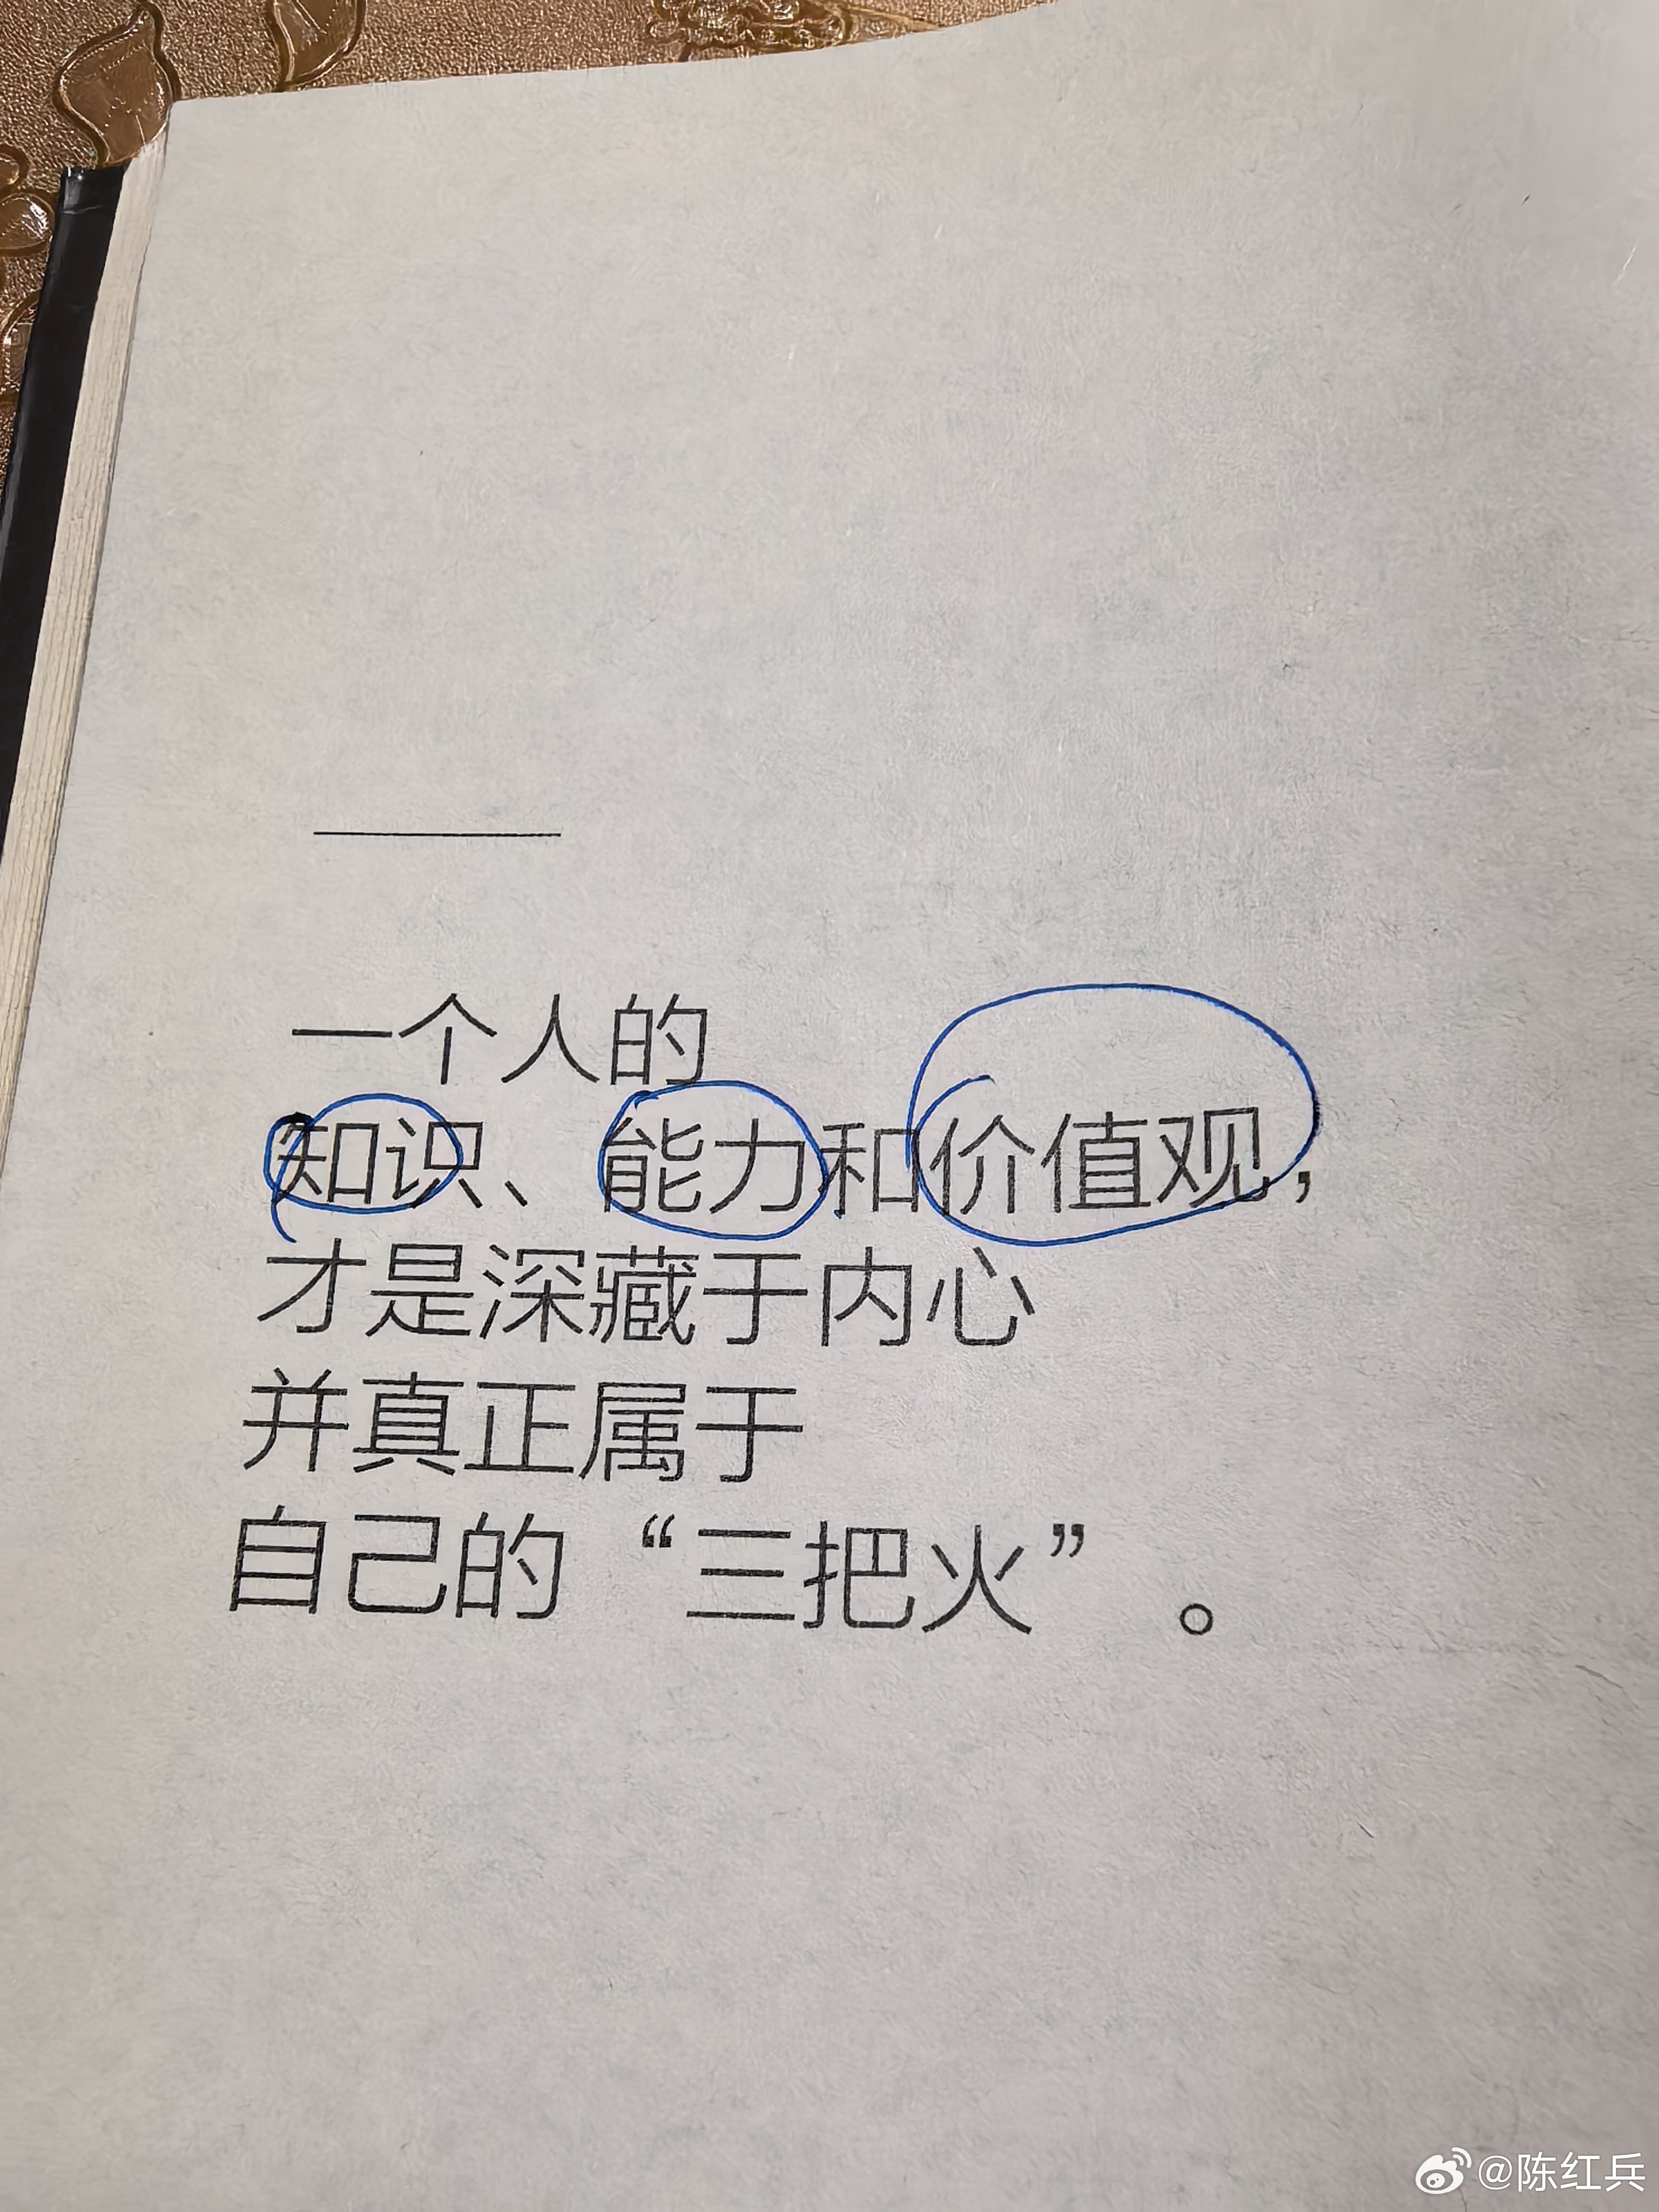 一个人的
知识、能力和价值观，
才是深藏于内心
并真正属于
自己的“三把火”。
@陈红兵